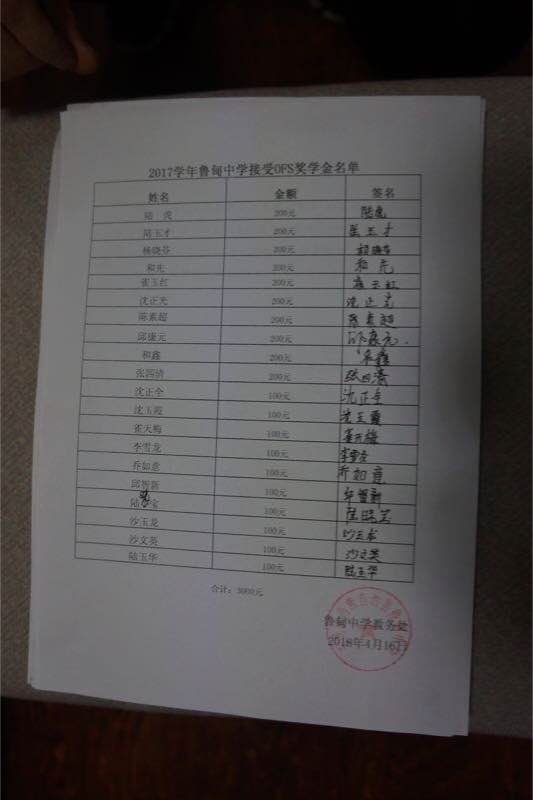 2017学年鲁甸中学接受OFS奖学金名单
姓名 金额 签名
陆 虎 200元 陆虎
陆玉才 200元 玉才
杨晓芬 200元
和先 200元 和先
崔玉红 200元 崔玉红
沈正光 200元 沈正光
陈素超 200元 陈素超
邱康元 200元 邱康元
和鑫 200元 和鑫
张四清 200元 张四清
沈正全 100元 沈正全
沈玉霞 100元 沈玉霞
崔天梅 100元 崔天梅
李雪龙 100元 李雪龙
乔如意 100元 乔如意
邱智新 100元 邱智新
陆 宝 100元 陆 宝
沙玉龙 100元 沙玉龙
沙文英 100元 沙文英
陆玉华 100元 陆玉华
合计：3000元
鲁甸中学教务处
2018年4月16日